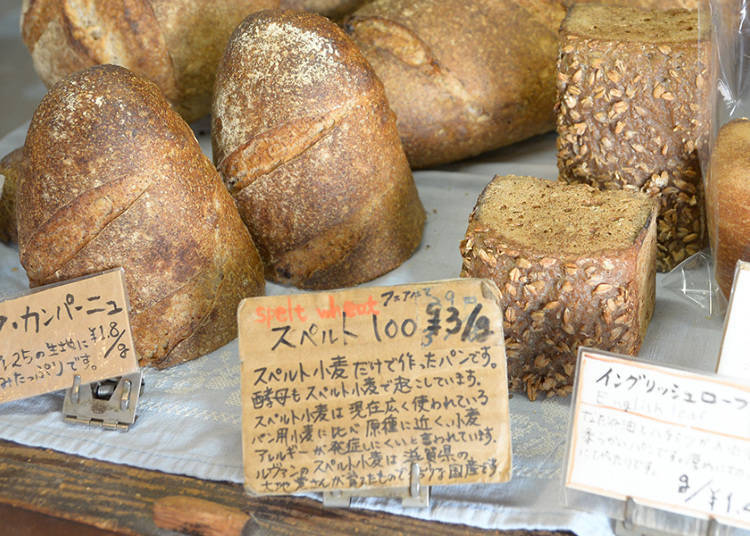 ・カンパーニュ
¥1.8/g
みたっぷりです。
spelt wheat
スペルト 100 ¥3/g
スペルト小麦だけで作ったパンです。
酵母もスペルト小麦で起こしています。
スペルト小麦は現在広く使われている
パン用小麦に比べ原種に近く、小麦
アレルギーが発症しにくいと言われています。
ルヴァンのスペルト小麦は滋賀県の
イングリッシュローフ
English loaf
g/¥1.